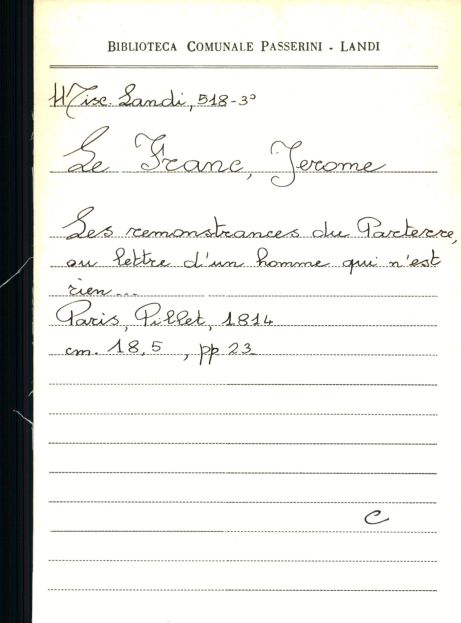 BIBLIOTECA COMUNALE PASSERINI - LANDI
Misc. Landi, 518-3°
Le Franc, Jerome
Les remonstrances du Parterre,
ou lettre d'un homme qui n'est
rien...
Paris, Pillet, 1814
cm. 18,5 , pp 23
C